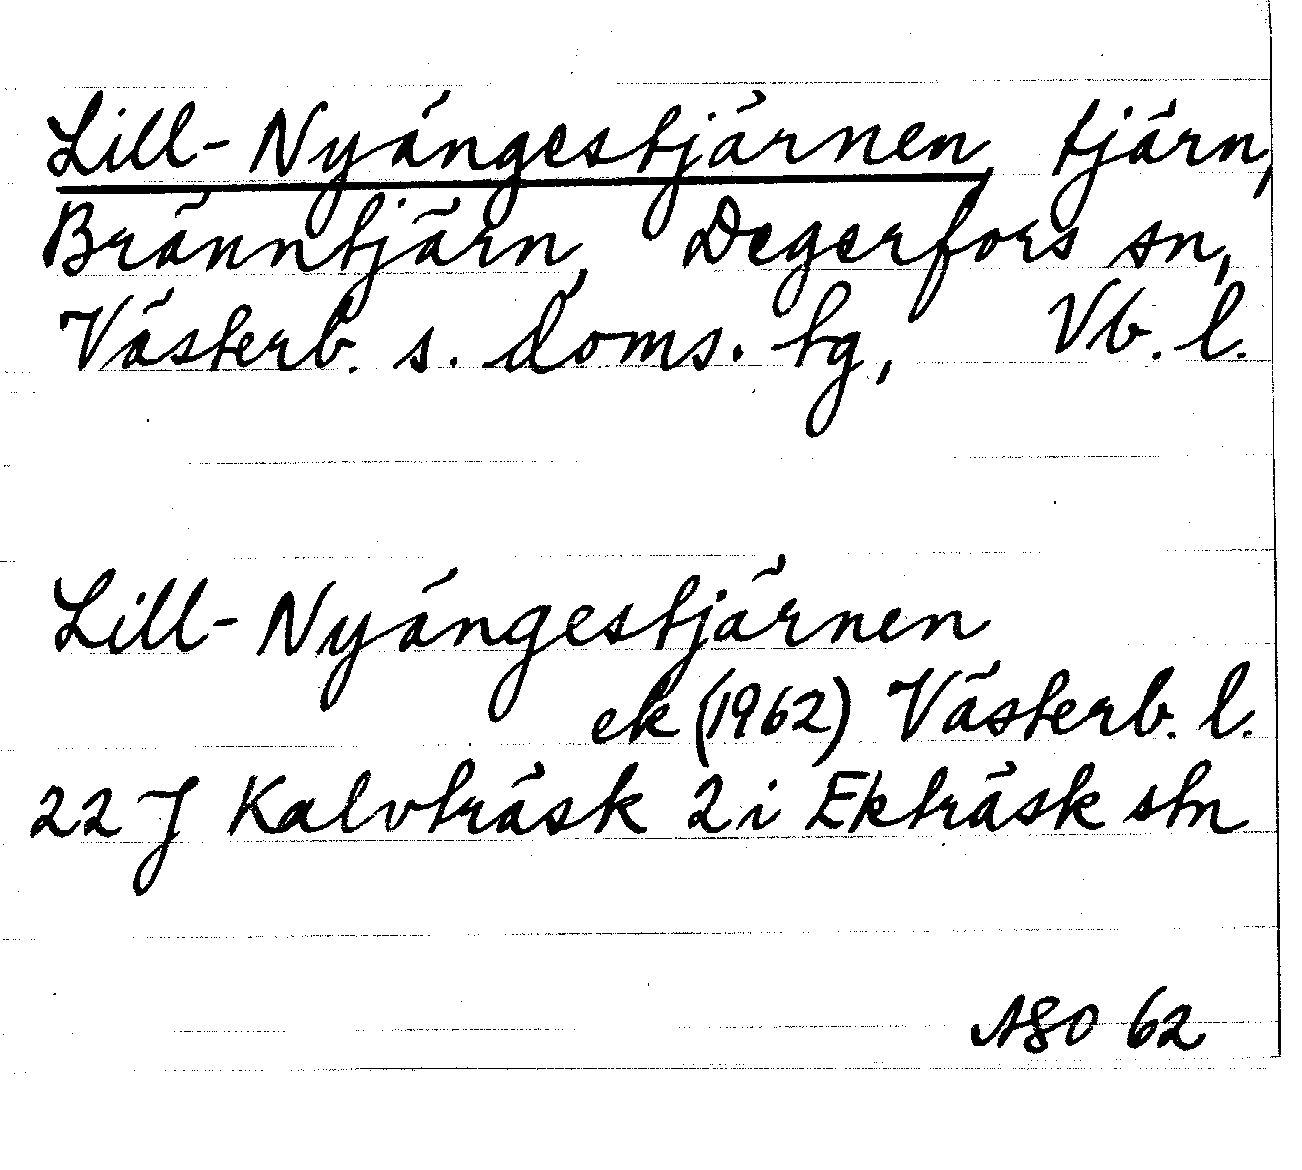 Lill-Nyängestjärnen, tjärn,
Bränntjärn, Degerfors sn,
Västerb. s. doms. tg, Vb. l.
Lill-Nyängestjärnen
ek (1962) Västerb. l.
22 J Kalvträsk 2 i Ekträsk stn
ASO 62